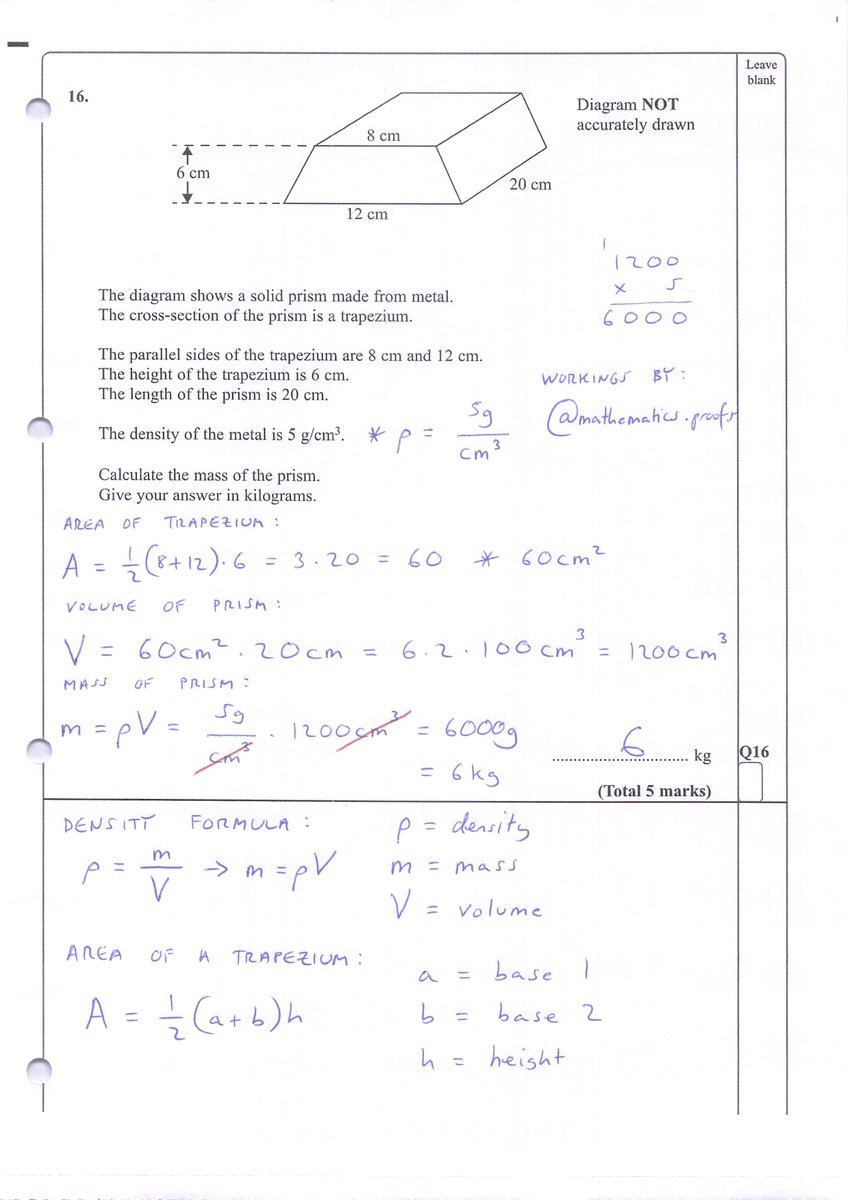 Leave
blank
16.
Diagram NOT
accurately drawn
8 cm
6 cm
20 cm
12 cm
1
1200
x 5
6000
The diagram shows a solid prism made from metal.
The cross-section of the prism is a trapezium.
The parallel sides of the trapezium are 8 cm and 12 cm.
The height of the trapezium is 6 cm.
The length of the prism is 20 cm.
WORKINGS BY:
@mathematics.proofs
The density of the metal is 5 g/cm³. * ρ = 5g/cm³
Calculate the mass of the prism.
Give your answer in kilograms.
AREA OF TRAPEZIUM:
A = 1/2(8+12)·6 = 3·20 = 60 * 60cm²
VOLUME OF PRISM:
V = 60cm² · 20cm = 6·2·100cm³ = 1200cm³
MASS OF PRISM:
m = ρV = 5g/cm³ · 1200cm³ = 6000g
= 6kg
6 kg
Q16
(Total 5 marks)
DENSITY FORMULA:
ρ = m/V → m = ρV
ρ = density
m = mass
V = volume
AREA OF A TRAPEZIUM:
A = 1/2(a+b)h
a = base 1
b = base 2
h = height